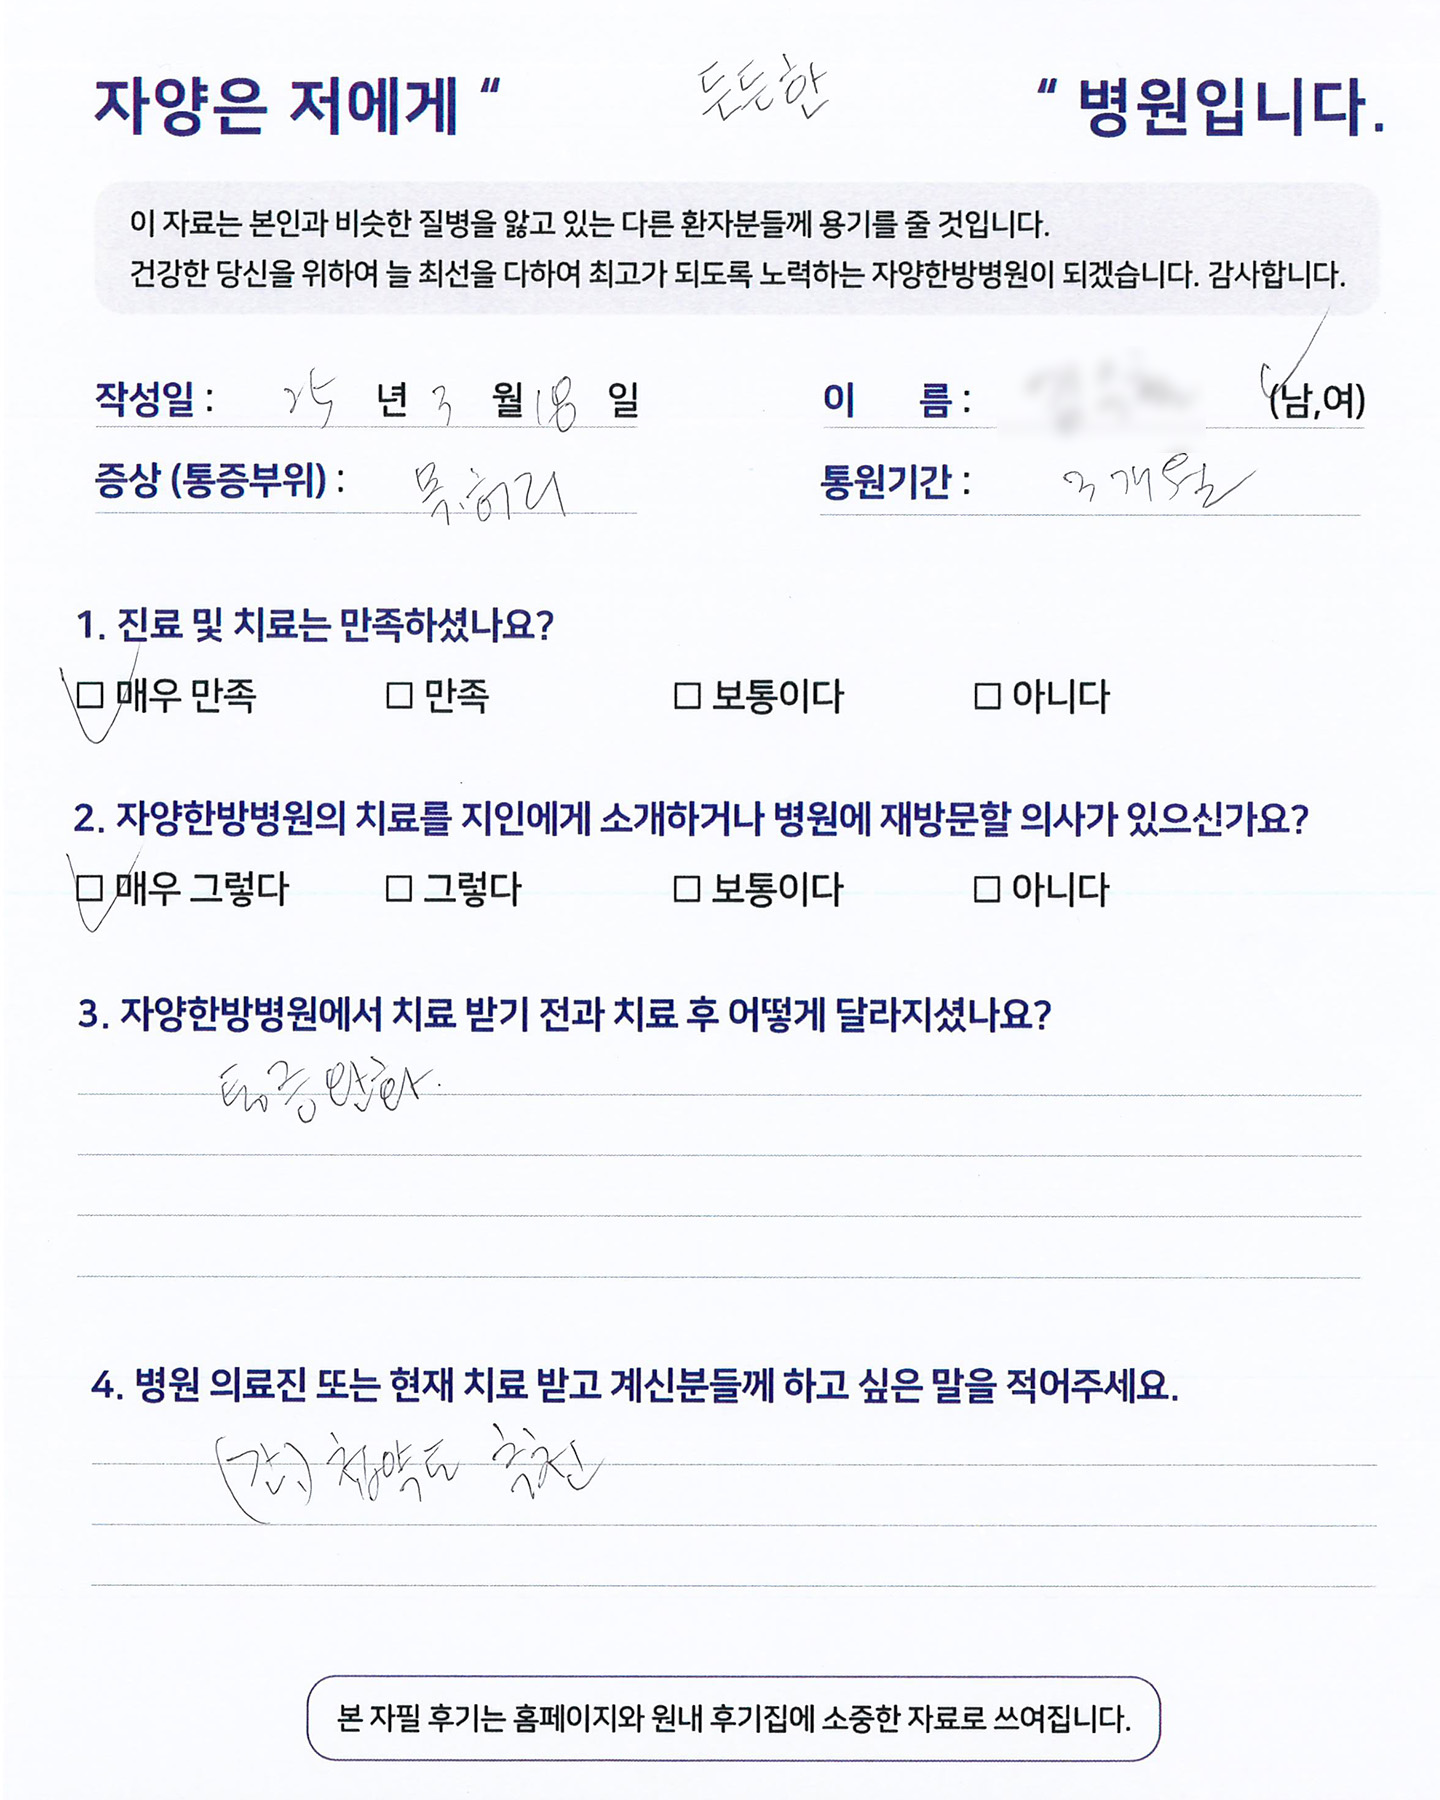 자양은 저에게 “ 든든한 “ 병원입니다.
이 자료는 본인과 비슷한 질병을 앓고 있는 다른 환자분들께 용기를 줄 것입니다.
건강한 당신을 위하여 늘 최선을 다하여 최고가 되도록 노력하는 자양한방병원이 되겠습니다. 감사합니다.
작성일 : 25 년 3 월 18 일 이 름 : (남,여)
증상 (통증부위) : 목.허리 통원기간 : 3개월
1. 진료 및 치료는 만족하셨나요?
☐ 매우 만족 ☐ 만족 ☐ 보통이다 ☐ 아니다
2. 자양한방병원의 치료를 지인에게 소개하거나 병원에 재방문할 의사가 있으신가요?
☐ 매우 그렇다 ☐ 그렇다 ☐ 보통이다 ☐ 아니다
3. 자양한방병원에서 치료 받기 전과 치료 후 어떻게 달라지셨나요?
통증완화.
4. 병원 의료진 또는 현재 치료 받고 계신분들께 하고 싶은 말을 적어주세요.
첩약도 추천
본 자필 후기는 홈페이지와 원내 후기집에 소중한 자료로 쓰여집니다.